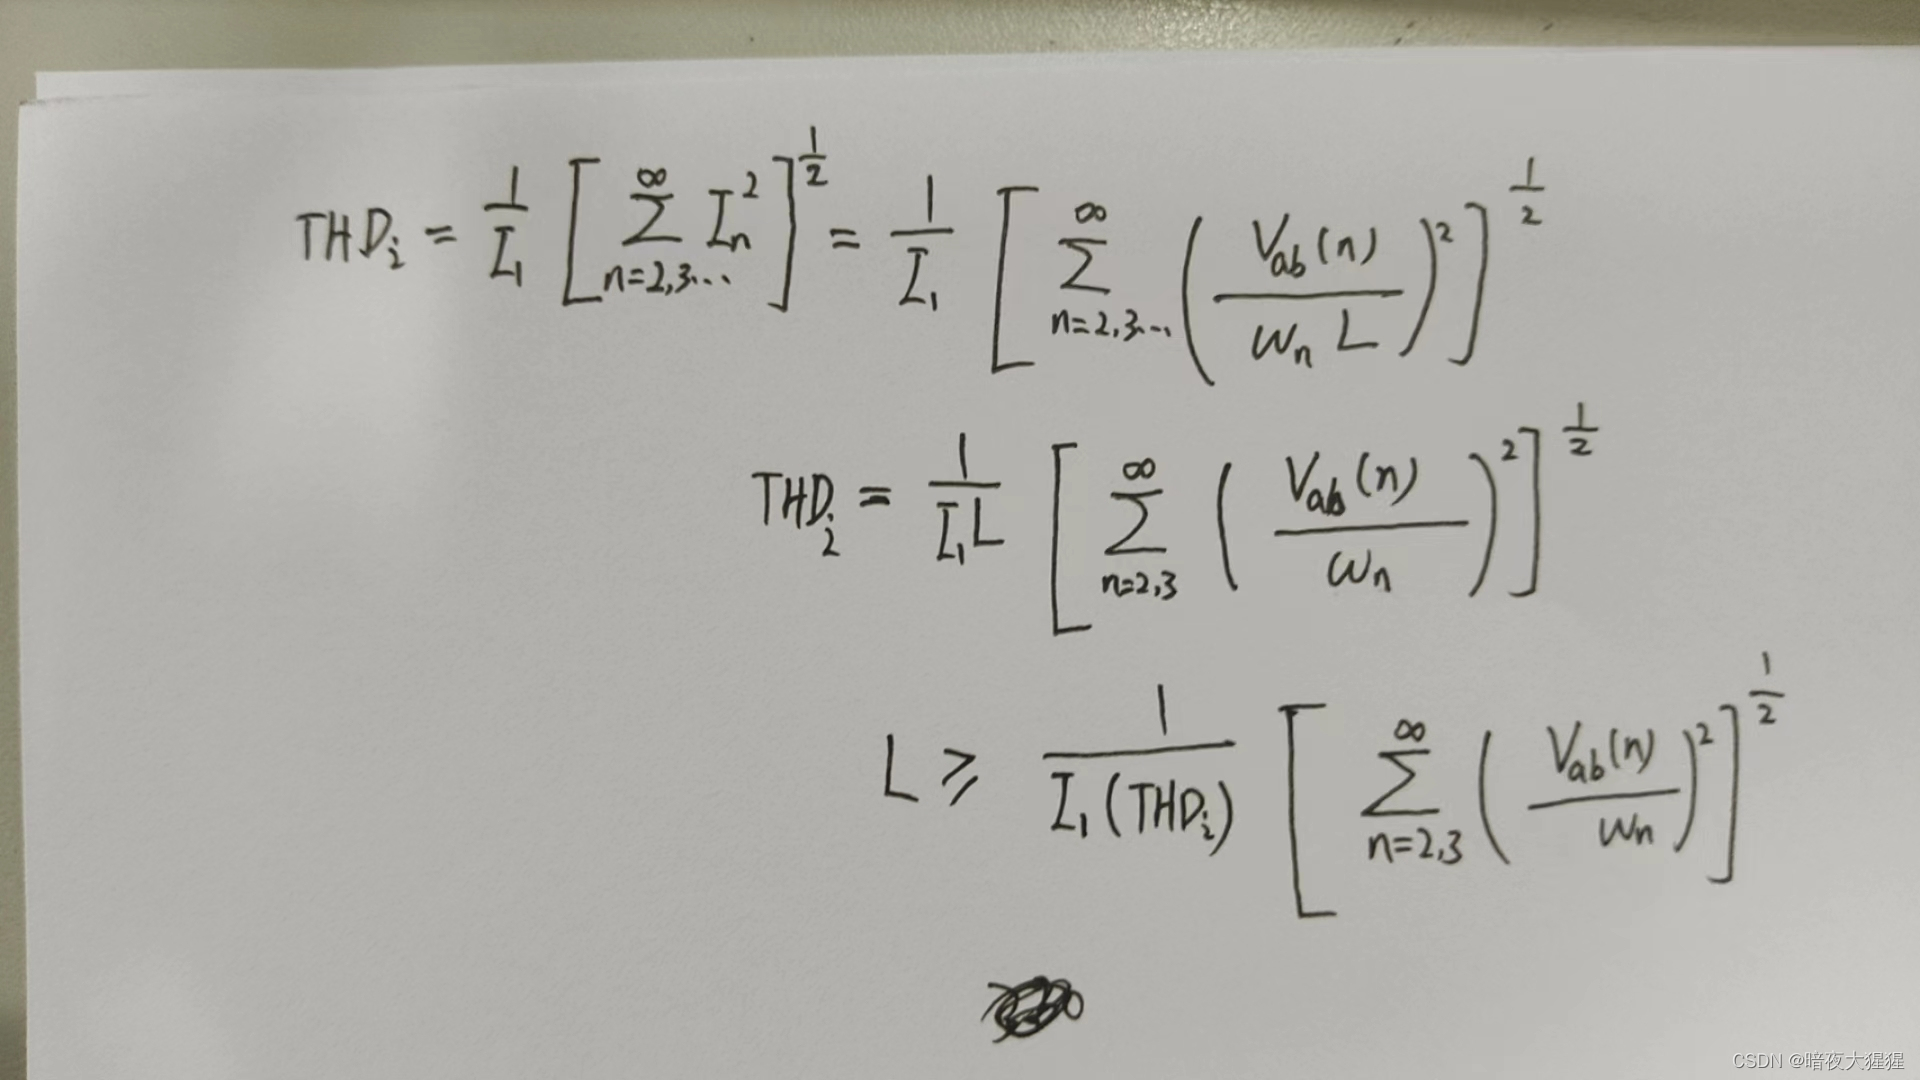 THD_i = \frac{1}{I_1} \left[ \sum_{n=2,3\cdots}^{\infty} I_n^2 \right]^{\frac{1}{2}} = \frac{1}{I_1} \left[ \sum_{n=2,3\cdots}^{\infty} \left( \frac{V_{ab}(n)}{\omega_n L} \right)^2 \right]^{\frac{1}{2}}
THD_i = \frac{1}{I_1 L} \left[ \sum_{n=2,3}^{\infty} \left( \frac{V_{ab}(n)}{\omega_n} \right)^2 \right]^{\frac{1}{2}}
L \geqslant \frac{1}{I_1 (THD_i)} \left[ \sum_{n=2,3}^{\infty} \left( \frac{V_{ab}(n)}{\omega_n} \right)^2 \right]^{\frac{1}{2}}
CSDN @暗夜大猩猩